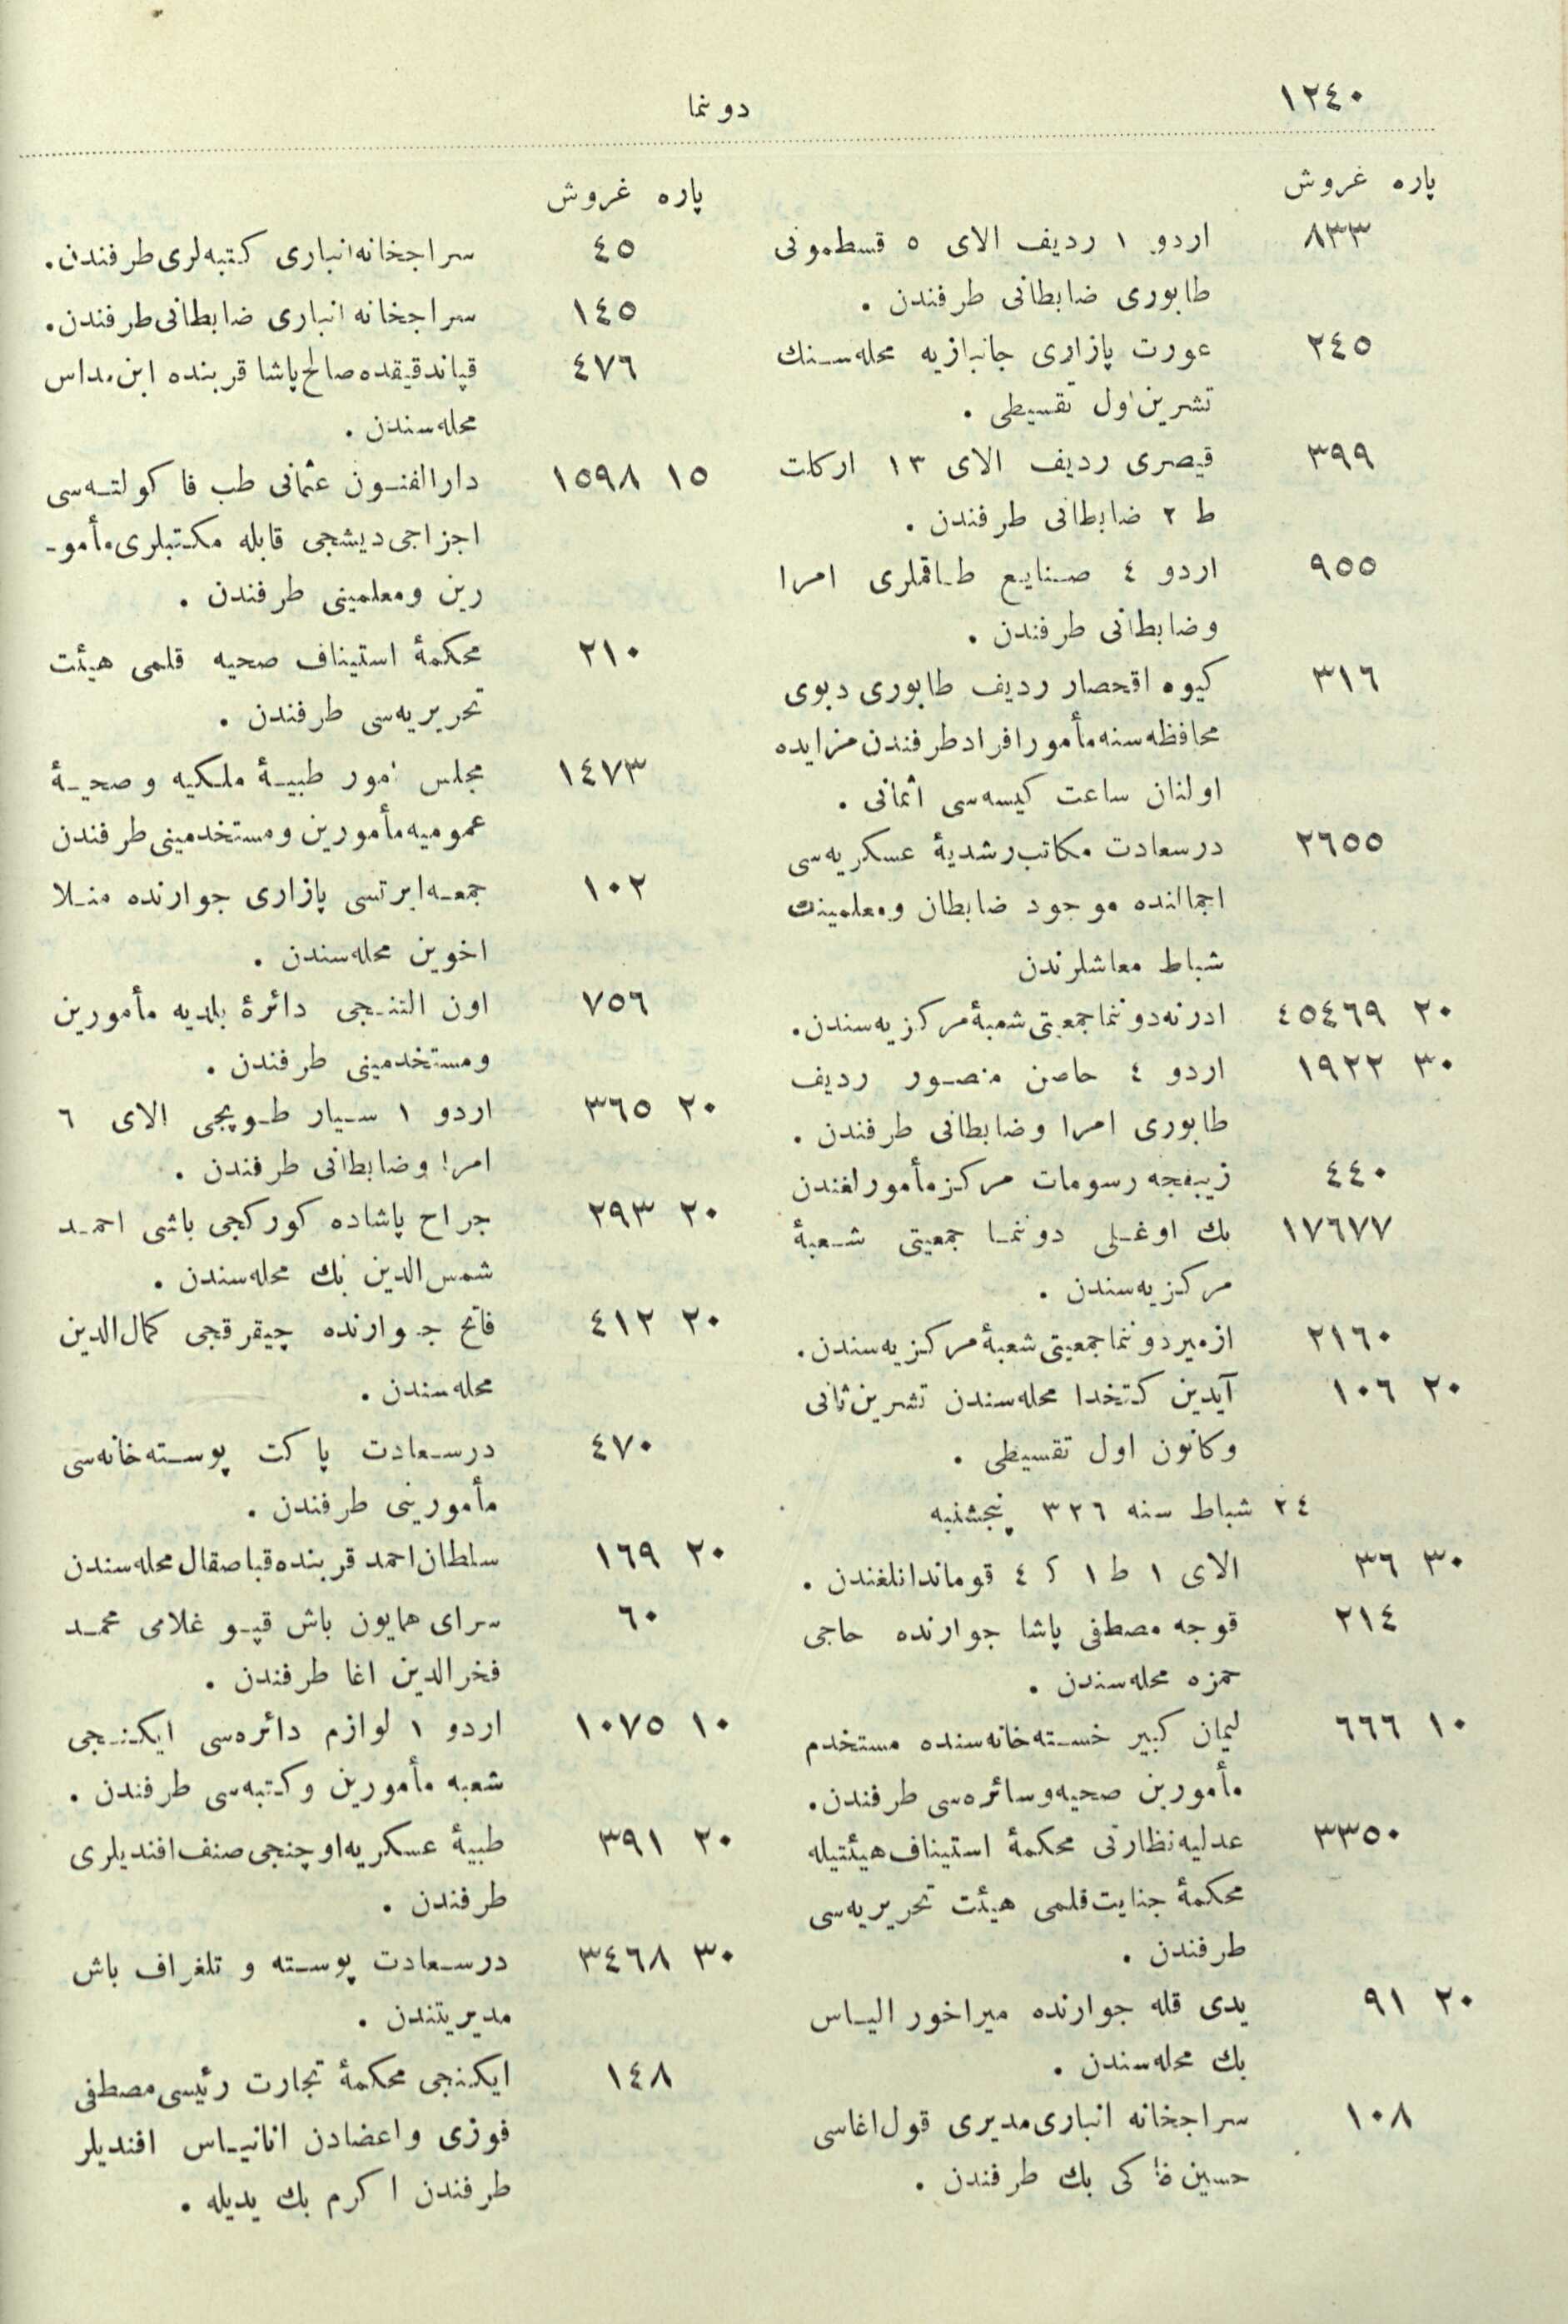 ١٢٤٠
دونما
پاره غروش
٨٣٣ اردو ١ رديف الاى ٥ قسطمونى
طابورى ضابطانى طرفندن .
٢٤٥ عورت پازارى جانبازيه محله‌سنك
تشرين اول تقسيطى .
٣٩٩ قيصرى رديف الاى ١٣ اركلت
ط ٢ ضابطانى طرفندن .
٩٥٥ اردو ٤ صنايع طاقملرى امرا
وضابطانى طرفندن .
٣١٦ كيوه اقحصار رديف طابورى دبوى
محافظه‌سنه مأمور افراد طرفندن مزايده
اولنان ساعت كيسه‌سى اثمانى .
٢٦٥٥ درسعادت مكاتب رشديۀ عسكريه‌سى
اجمالنده موجود ضابطان ومعلمينك
شباط معاشلرندن
٢٠ ٤٥٤٦٩ ادرنه دونما جمعيتى شعبۀ مركزيه‌سندن.
٣٠ ١٩٢٢ اردو ٤ حاصن منصور رديف
طابورى امرا وضابطانى طرفندن .
٤٤٠ زيبفجه رسومات مركز مأمورلغندن
١٧٦٧٧ بك اوغلى دونما جمعيتى شعبۀ
مركزيه‌سندن .
٢١٦٠ ازمير دونما جمعيتى شعبۀ مركزيه‌سندن.
٢٠ ١٠٦ آيدين كتخدا محله‌سندن تشرين ثانى
وكانون اول تقسيطى .
٢٤ شباط سنه ٣٢٦ پنجشنبه
٣٠ ٣٦ الاى ١ ط ١ ك ٤ قوماندانلغندن .
٢١٤ قوجه مصطفى پاشا جوارنده حاجى
حمزه محله‌سندن .
١٠ ٦٦٦ ليمان كبير خسته‌خانه‌سنده مستخدم
مأمورين صحيه وسائره‌سى طرفندن.
٣٣٥٠ عدليه نظارتى محكمۀ استيناف هيئتيله
محكمۀ جنايت قلمى هيئت تحريريه‌سى
طرفندن .
٢٠ ٩١ يدى قله جوارنده ميراخور الياس
بك محله‌سندن .
١٠٨ سراجخانه انبارى مديرى قول اغاسى
حسين كى بك طرفندن .
پاره غروش
٤٥ سراجخانه انبارى كتبه‌لرى طرفندن.
١٤٥ سراجخانه انبارى ضابطانى طرفندن.
٤٧٦ قپاندقيقده صالح پاشا قربنده ابن مداس
محله‌سندن .
١٥ ١٥٩٨ دارالفنون عثمانى طب فاكولته‌سى
اجزاجى ديشجى قابله مكتبلرى مأمو-
رين ومعلمينى طرفندن .
٢١٠ محكمۀ استيناف صحيه قلمى هيئت
تحريريه‌سى طرفندن .
١٤٧٣ مجلس امور طبيۀ ملكيه وصحيۀ
عموميه مأمورين ومستخدمينى طرفندن
١٠٢ جمعه ايرتسى پازارى جوارنده منلا
اخوين محله‌سندن .
٧٥٦ اون التنجى دائرۀ بلديه مأمورين
ومستخدمينى طرفندن .
٢٠ ٣٦٥ اردو ١ سيار طوپجى الاى ٦
امرا وضابطانى طرفندن .
٢٠ ٢٩٣ جراح پاشاده كوركجى باشى احمد
شمس‌الدين بك محله‌سندن .
٢٠ ٤١٢ فاتح جوارنده چيقرقجى كمال‌الدين
محله‌سندن .
٤٧٠ درسعادت پاكت پوسته‌خانه‌سى
مأمورينى طرفندن .
٢٠ ١٦٩ سلطان احمد قربنده قبا صقال محله‌سندن
٦٠ سراى همايون باش قپو غلامى محمد
فخرالدين اغا طرفندن .
١٠ ١٠٧٥ اردو ١ لوازم دائره‌سى ايكنجى
شعبه مأمورين وكتبه‌سى طرفندن .
٢٠ ٣٩١ طبيۀ عسكريه اوچنجى صنف افنديلرى
طرفندن .
٣٠ ٣٤٦٨ درسعادت پوسته و تلغراف باش
مديريتندن .
١٤٨ ايكنجى محكمۀ تجارت رئيسى مصطفى
فوزى واعضادن انانياس افنديلر
طرفندن اكرم بك يديله .